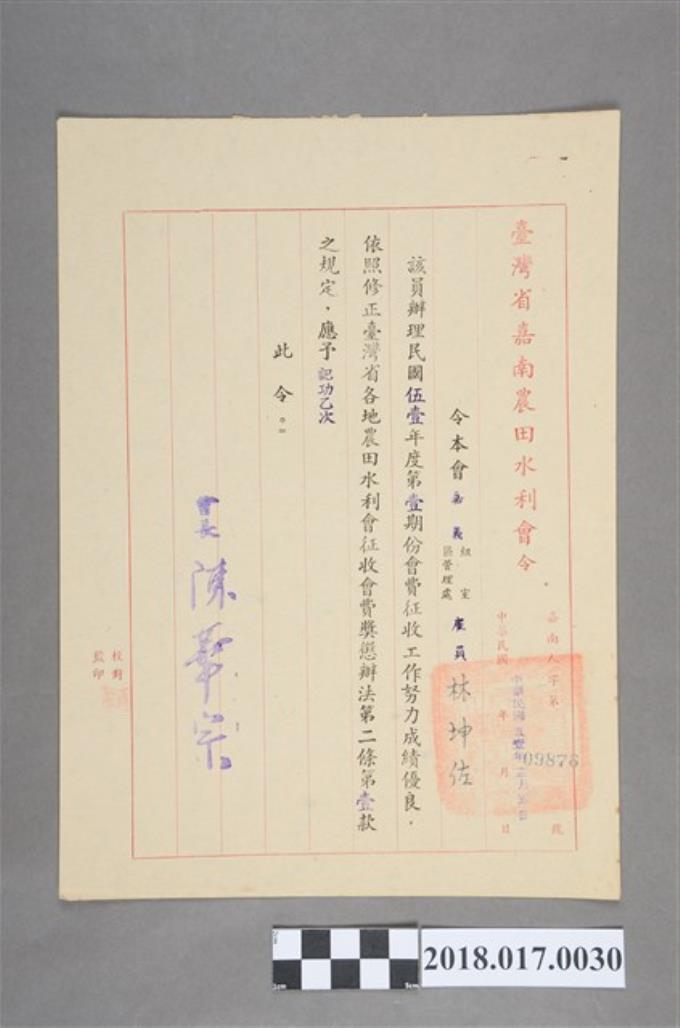 臺灣省嘉南農田水利會令
嘉南人字第09876號
中華民國 年 月 日
令本會嘉義
組室
區管理處
雇員林坤佐
該員辦理民國伍壹年度第壹期份會費征收工作努力成績優良，
依照修正臺灣省各地農田水利會征收會費獎懲辦法第二條第壹款
之規定，應予記功乙次
此令。
會長陳華宗
校對
監印
2018.017.0030